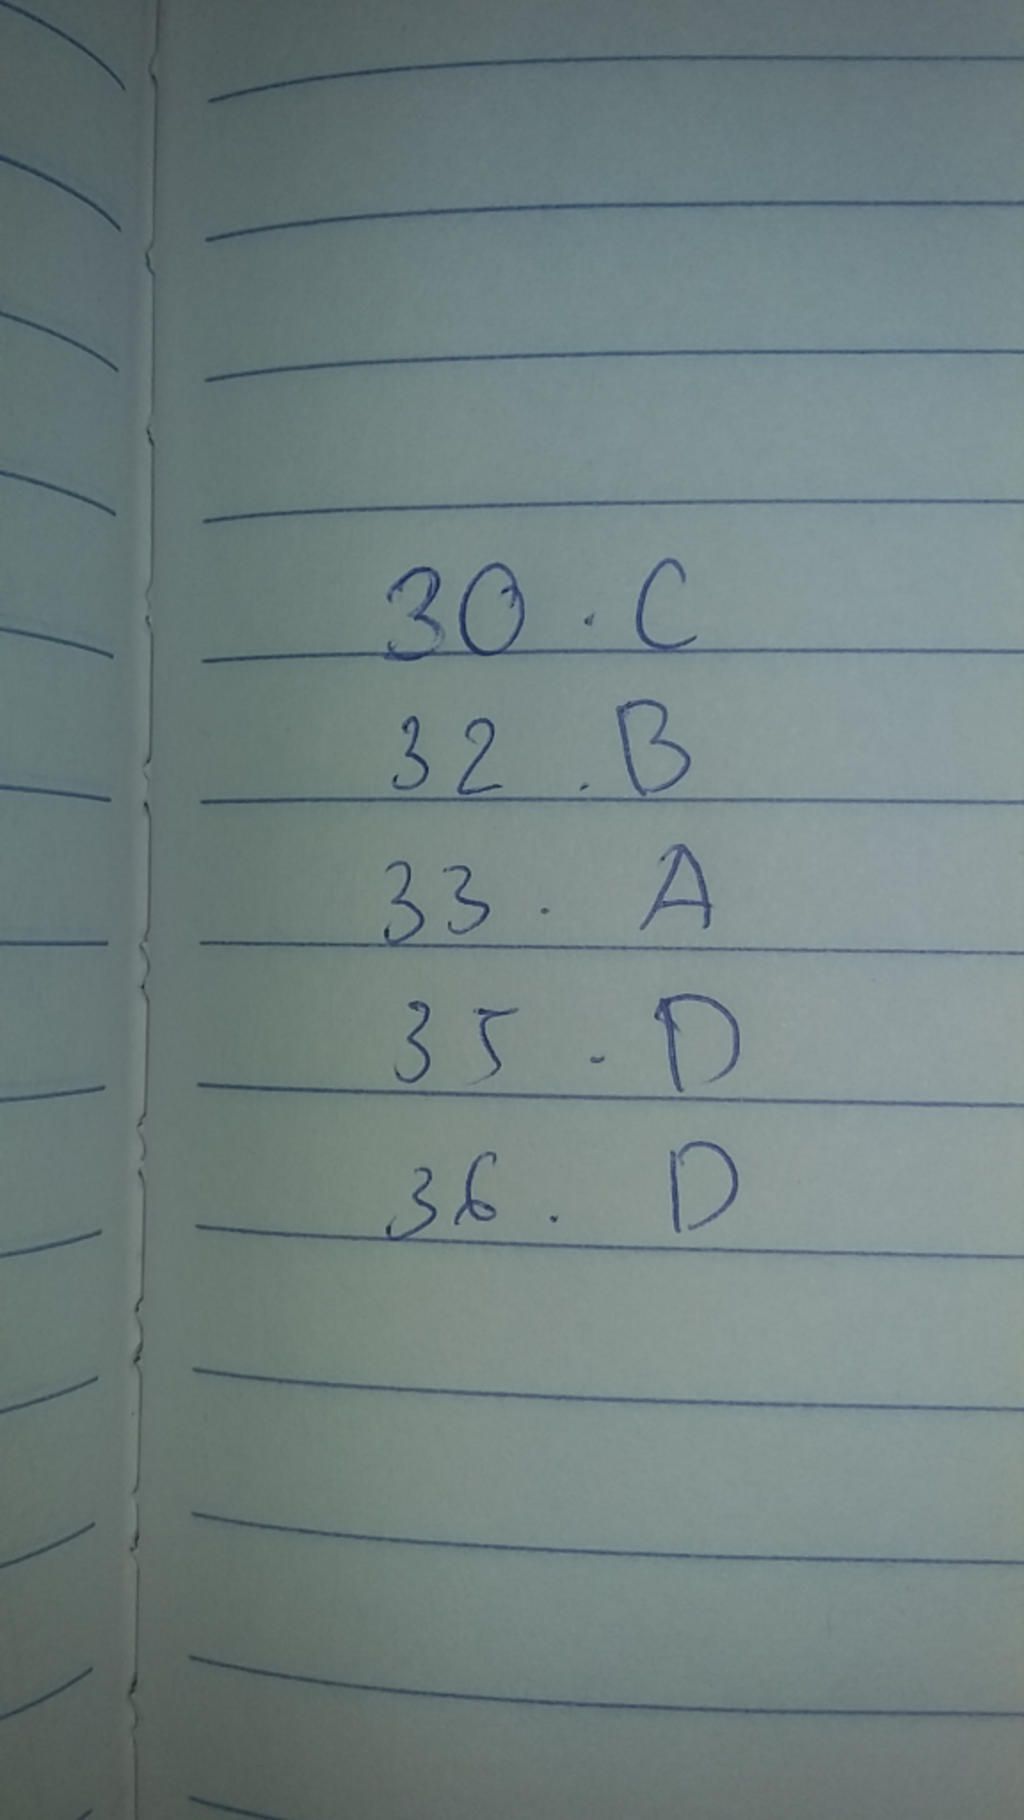 30 . C
32 . B
33 . A
35 . D
36 . D